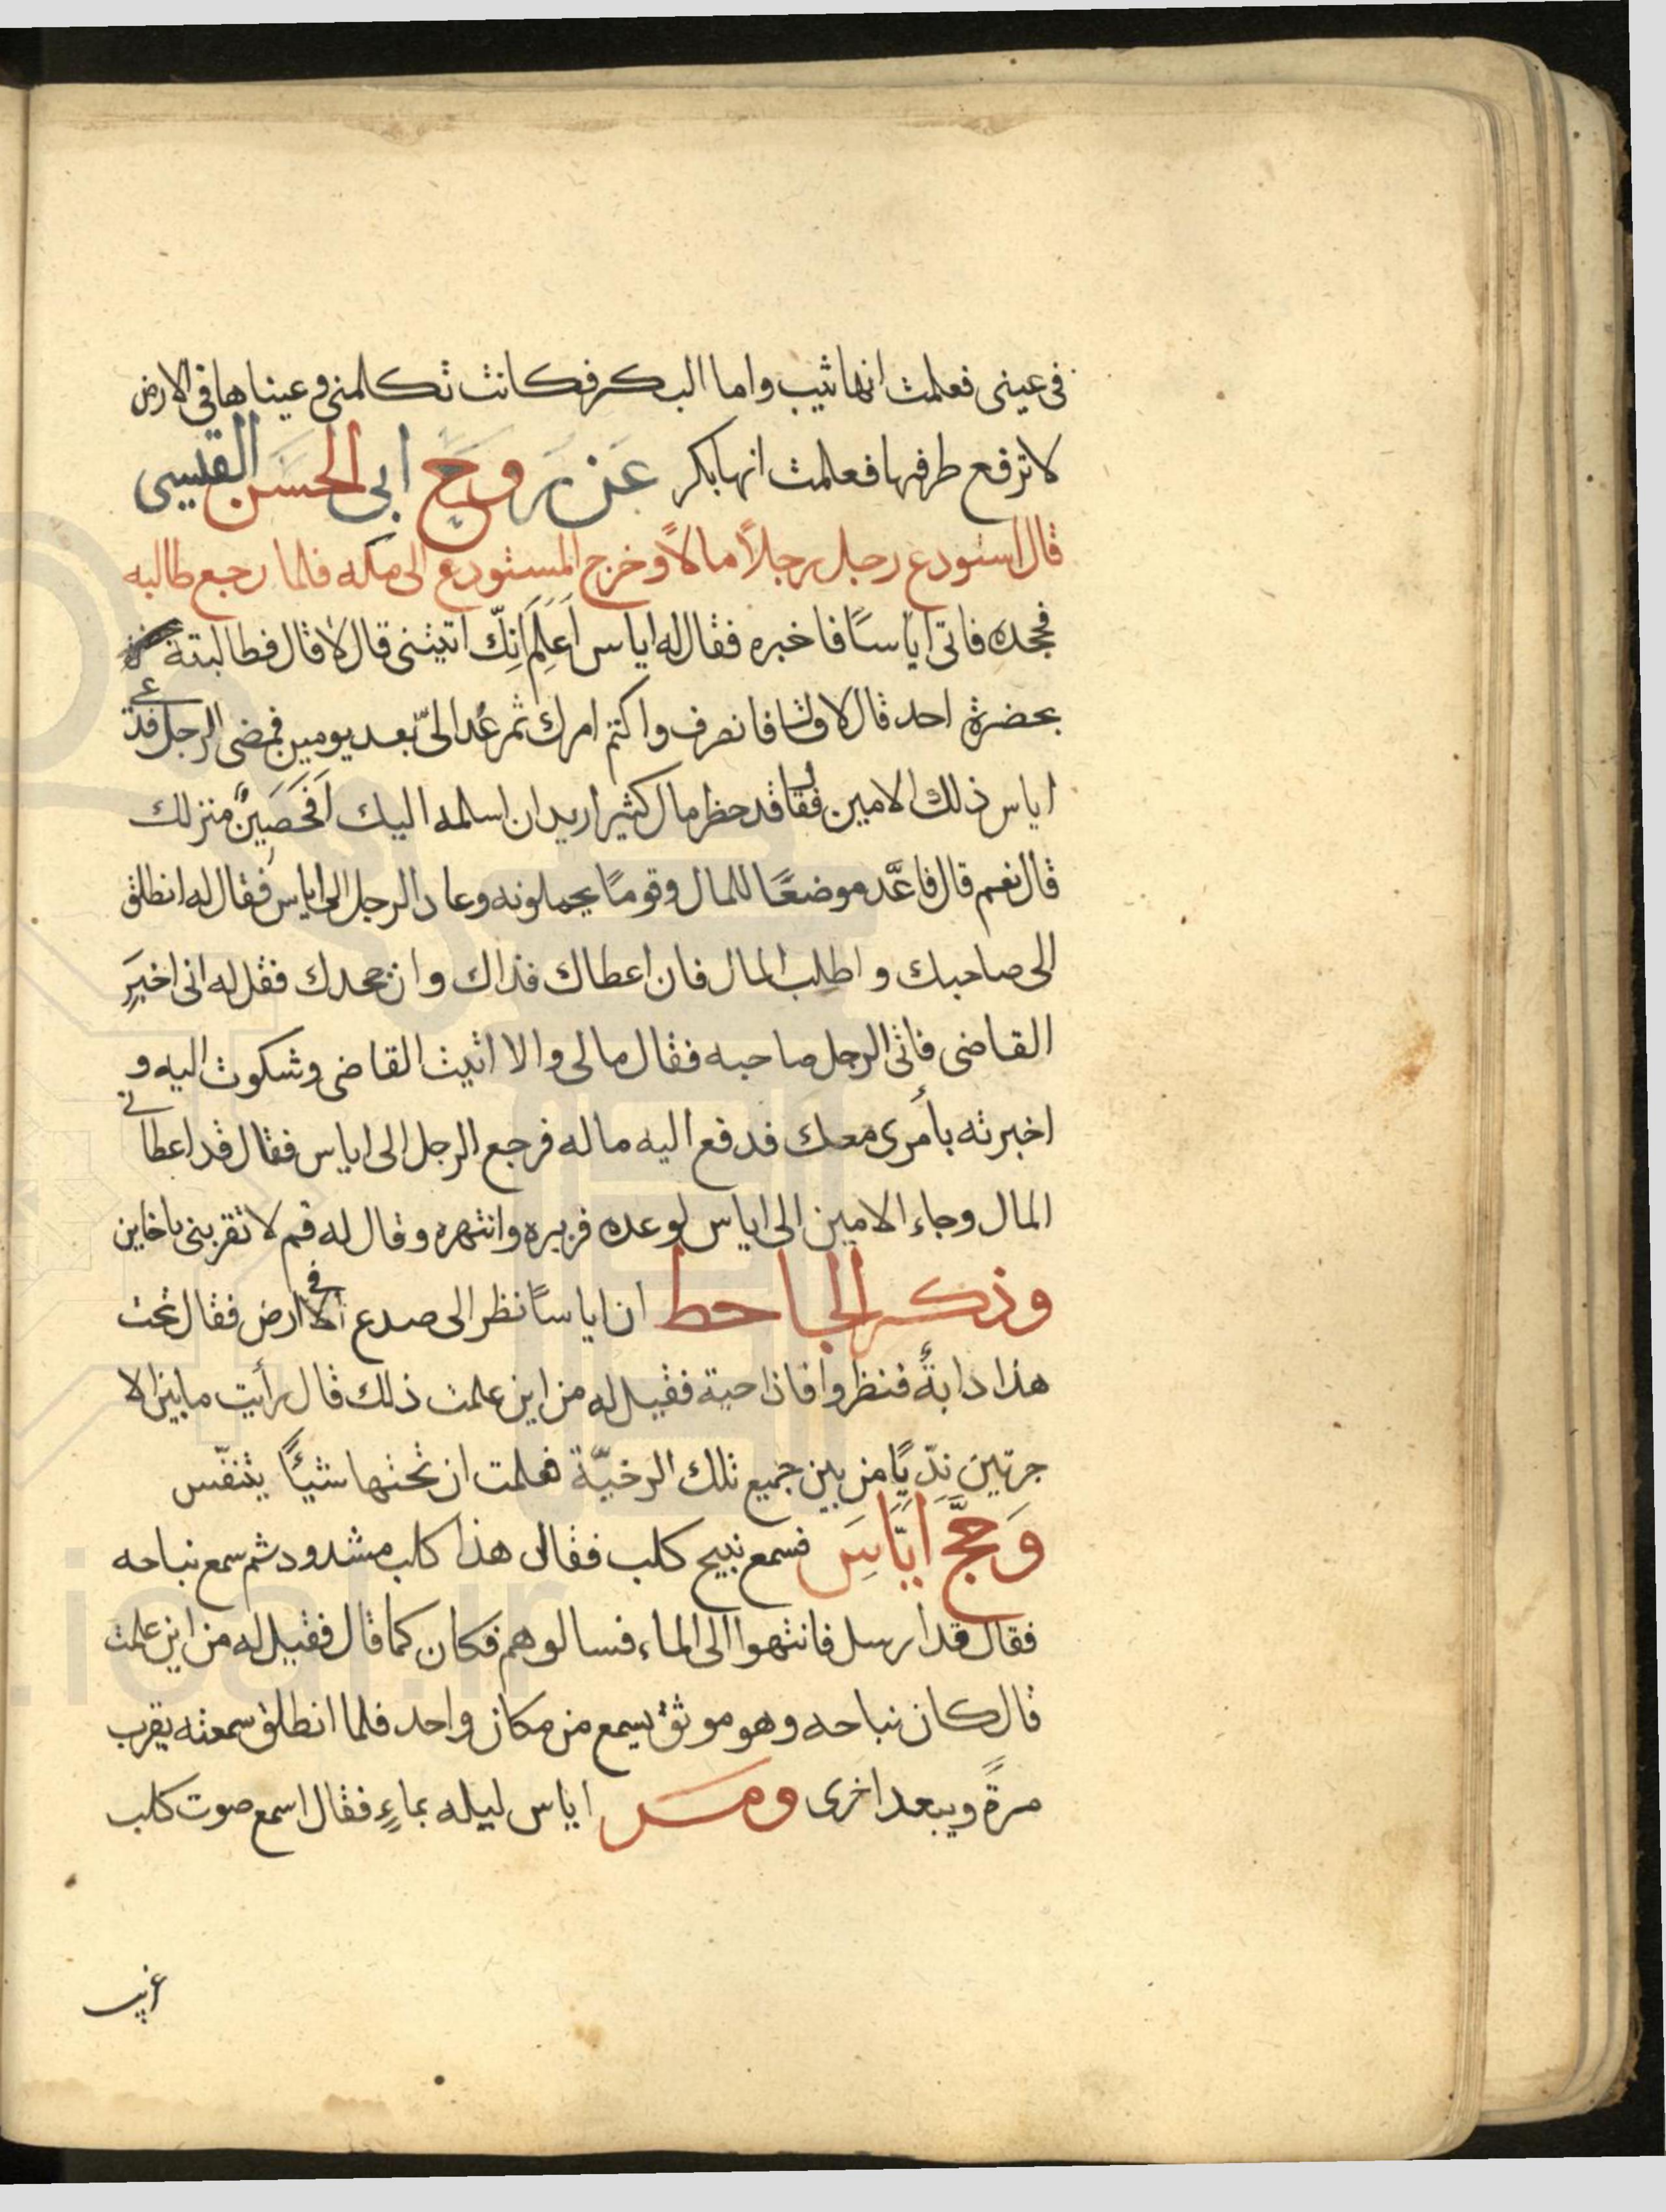 فى عينى فعلمت انها ثيب واما البكر فكانت تكلمنى وعيناها فى الارض
لا ترفع طرفها فعلمت انها بكر عَن روح ابى الحسن القيسى
قال استودع رجل رجلاً مالاً وخرج المستودع الى مكه فلما رجع طالبه
فجحده فاتى اياسًا فاخبره فقال له اياس اَعَلِمَ اَنِّك اتيتنى قال لا قال فطالبتة
بحضرة احد قال لا قال فانصرف واكتم امرك ثم عُد الىّ بعد يومين فمضى الرجل فدعى
اياس ذلك الامين فقال قد حظر مال كثير اريد ان اسلمه اليك اَفَحَصَينٌ منزلك
قال نعم قال فاعَّد موضعًا للمال وقومًا يحملونه وعاد الرجل الى اياس فقال له انطلق
الى صاحبك واطلب المال فان اعطاك فذاك وان جحدك فقل له انى اخبر
القاضى فاتى الرجل صاحبه فقال مالى والا اتيت القاضى وشكوت اليه و
اخبرته بأمرى معك فدفع اليه ماله فرجع الرجل الى اياس فقال قد اعطانى
المال وجاء الامين الى اياس لوعده فزبره وانتهره وقال له قم لا تقربنى ياخاين
وذكر الجاحط ان اياسًا نظر الى صدع فى الارض فقال تحت
هذا دابةٌ فنظروا فاذا حية فقيل له من اين علمت ذلك قال رأيت ما بين الا
جرتين ندّيًا من بين جميع تلك الرخيّة فعلمت ان تحتها شيئًا يتنفّس
وَحَجَّ اَيّاسَ فسمع نبيح كلب فقال هذا كلب مشدود ثم سمع نباحه
فقال قد ارسل فانتهوا الى الماء فسالوهم فكان كما قال فقيل له من اين علمت
قال كان نباحه وهو موثق يسمع من مكان واحد فلما انطلق سمعته يقرب
مرةً ويبعد اخرى ومر اياس ليله بماءٍ فقال اسمع صوت كلب
غريب